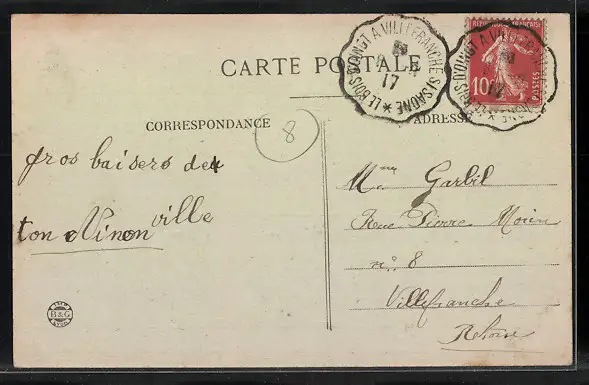 CARTE POSTALE
LE BOIS-D'OINGT A VILLEFRANCHE S/SAONE
17
RÉPUBLIQUE FRANÇAISE
10
POSTES
CORRESPONDANCE
8
ADRESSE
gros baisers de
ton Ninon ville
Mme Garbil
Rue Pierre Morin
n° 8
Villefranche
Rhône
IMP
B&G
LYON